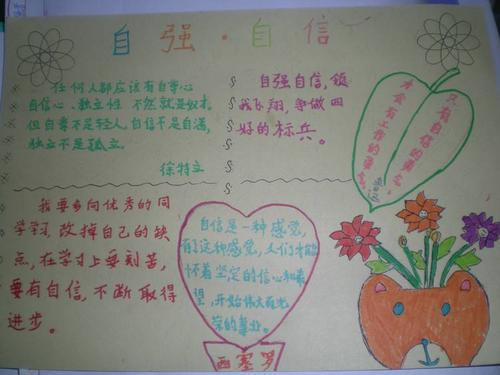 自强·自信
任何人都应该有自尊心
自信心、独立性 不然就是奴才.
但自尊不是轻人,自信不是自满,
独立不是孤立.
徐特立
自强自信,领
我飞翔,争做四
好的标兵。
只有自信的勇气,
才会有工作的勇气。
鲁迅
我要多向优秀的同
学学习,改掉自己的缺
点,在学习上要刻苦,
要有自信,不断取得
进步。
自信是一种感觉,
有这种感觉,人们才能
怀着坚定的信心和希
望,开始伟大而光
荣的事业.
西塞罗